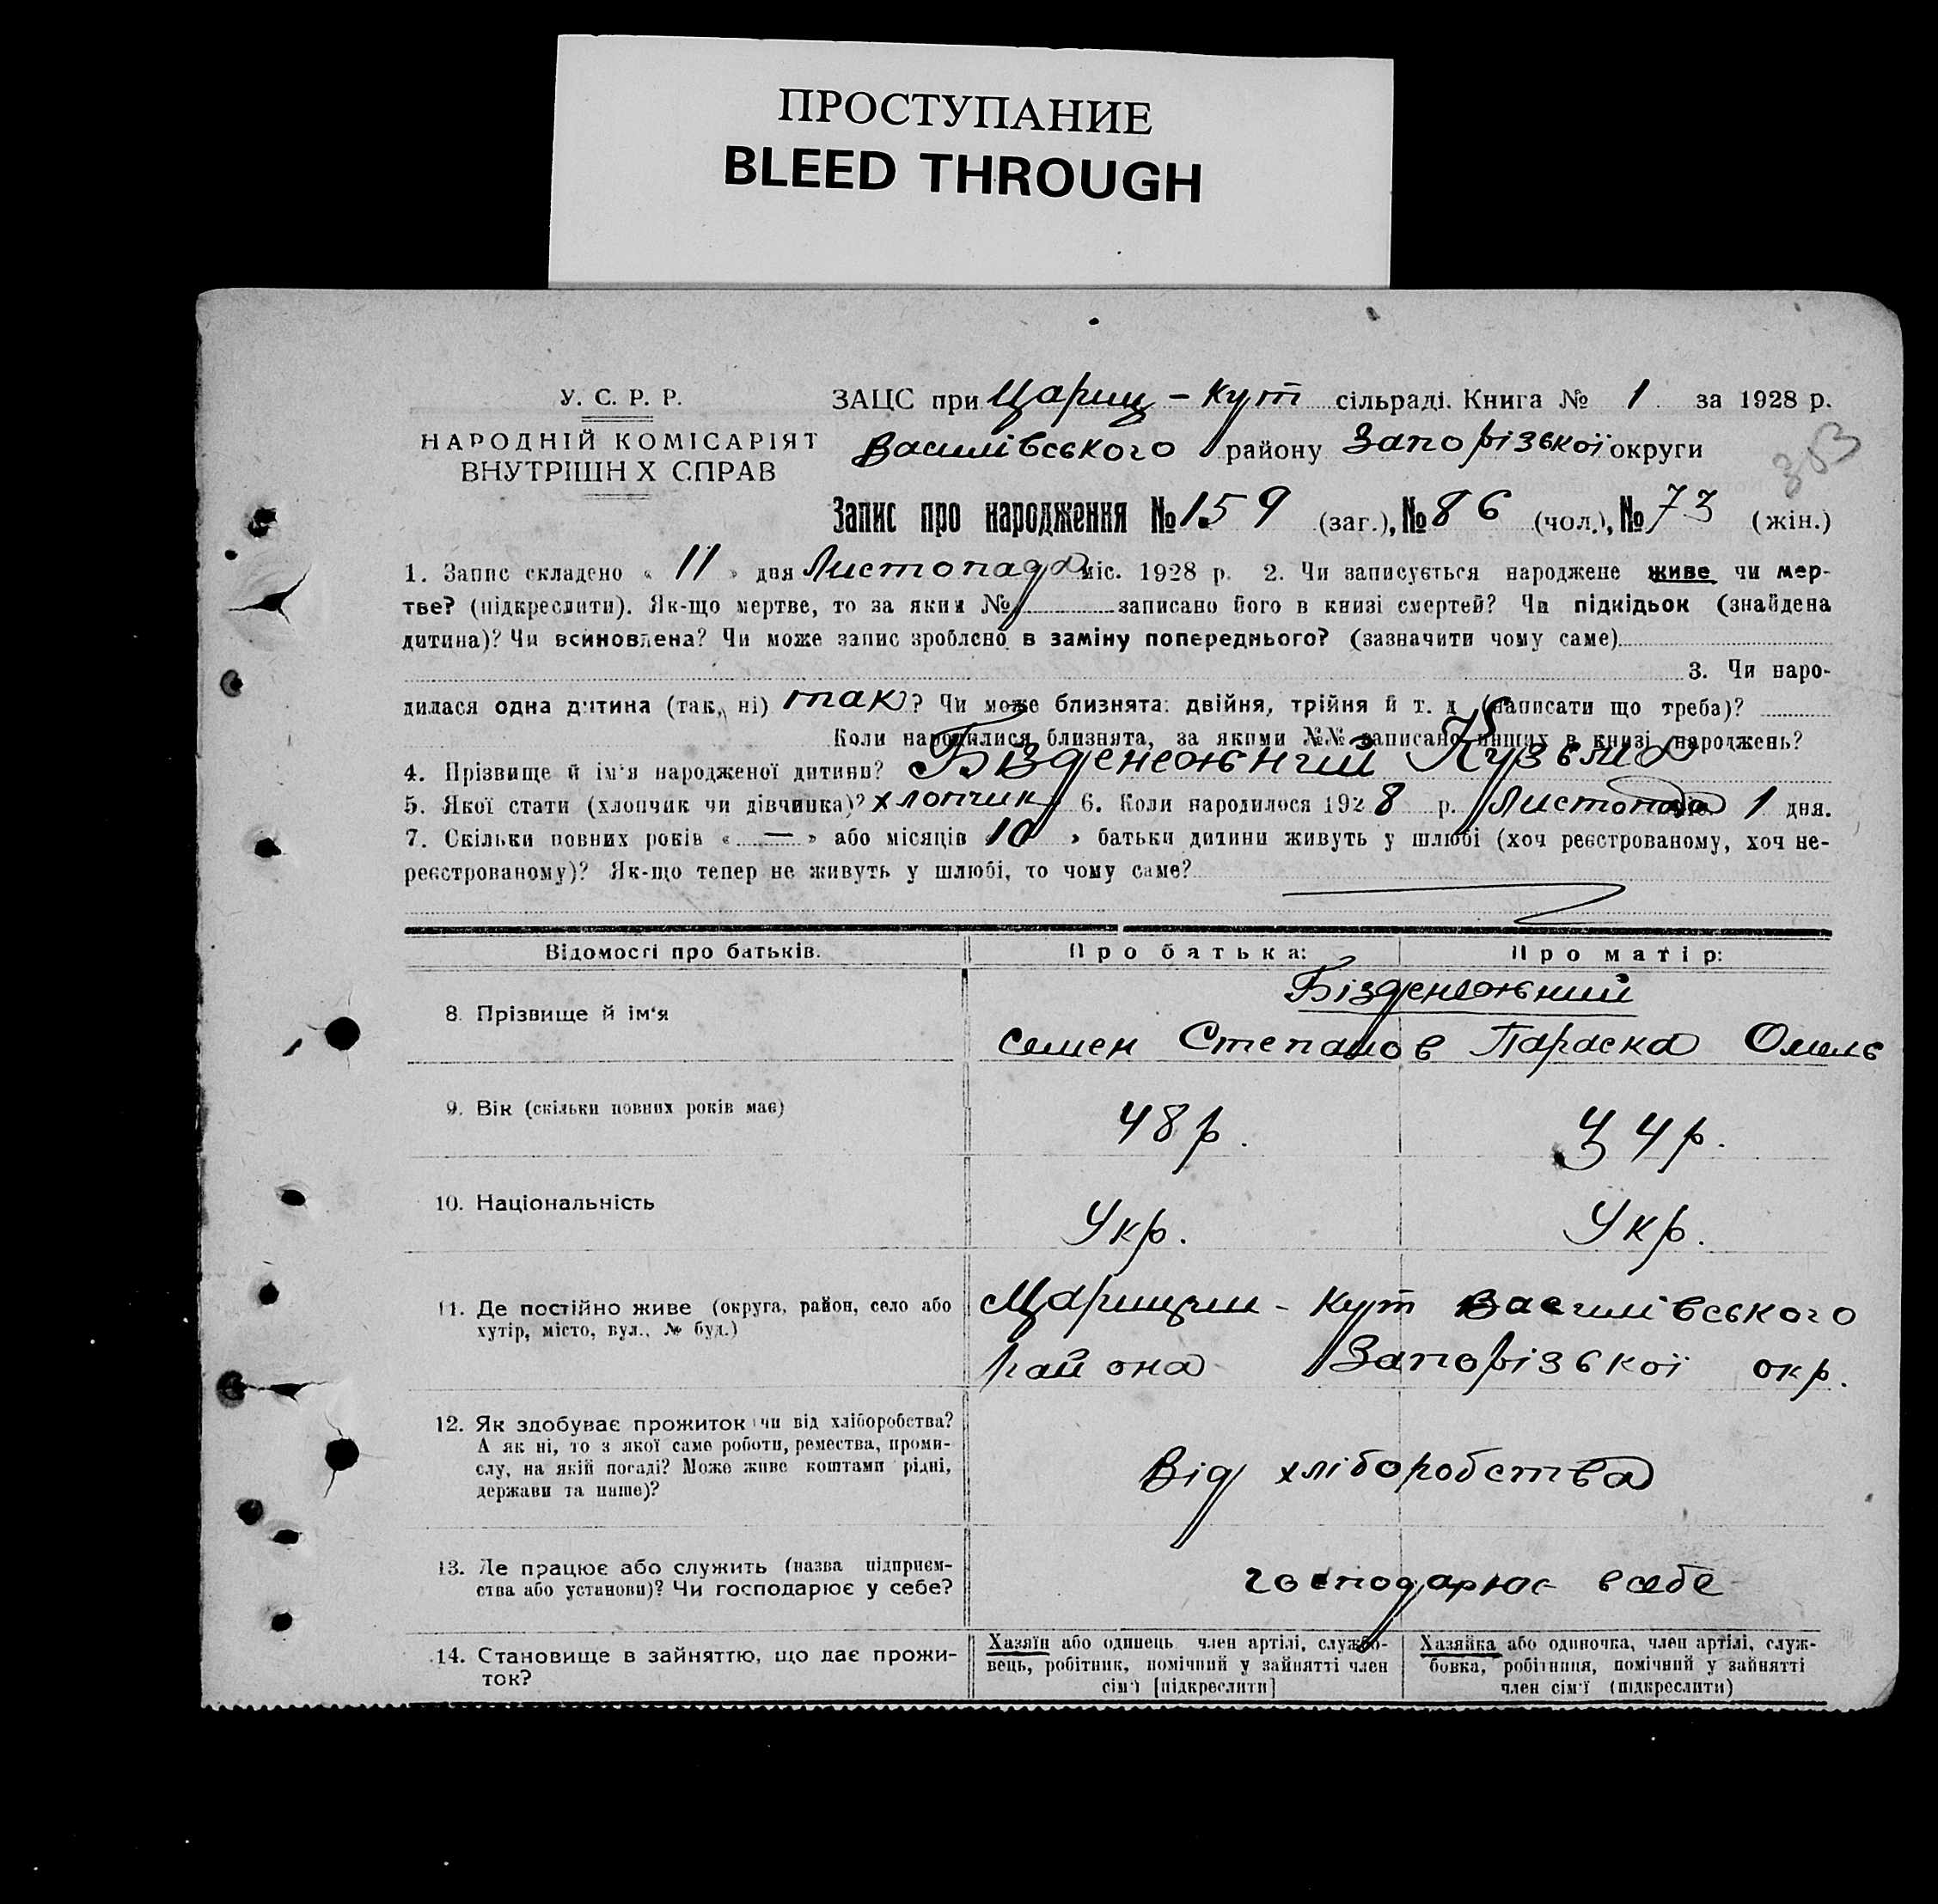 ПРОСТУПАНИЕ
BLEED THROUGH
У. С. Р. Р.
НАРОДНІЙ КОМІСАРІЯТ
ВНУТРІШН Х СПРАВ
ЗАЦС при Цариц - Кут сільраді. Книга № 1 за 1928 р.
Василівського району Запорізької округи
Запис про народження № 159 (заг.), № 86 (чол.), № 73 (жін.)
1. Запис складено « 11 » дня Листопада міс. 1928 р. 2. Чи записується народжене живе чи мер-
тве? (підкреслити). Як-що мертве, то за яким № записано його в книзі смертей? Чи підкідьок (знайдена
дитина)? Чи всиновлена? Чи може запис зроблено в заміну попереднього? (зазначити чому саме)
3. Чи наро-
дилася одна дитина (так, ні) так? Чи може близнята: двійня, трійня й т. д (написати що треба)?
Коли народилися близнята, за якими №№ записано инших в книзі народжень?
4. Прізвище й ім'я народженої дитини? Бізденежний Кузьма
5. Якої стати (хлопчик чи дівчинка)? хлопчик 6. Коли народилося 1928 р. Листопада 1 дня.
7. Скільки повних років « — » або місяців 10 » батьки дитини живуть у шлюбі (хоч реєстрованому, хоч не-
реєстрованому)? Як-що тепер не живуть у шлюбі, то чому саме?
Відомості про батьків. Про батька: Про матір:
Бізденежний
8. Прізвище й ім'я
Семен Степанов Параска Омеле
9. Вік (скільки повних років має) 48 р. 34 р.
10. Національність Укр. Укр.
11. Де постійно живе (округа, район, село або Царицин - Кут Василівського
хутір, місто, вул., № буд.) района Запорізької окр.
12. Як здобуває прожиток чи від хліборобства?
А як ні, то з якої саме роботи, ремества, проми-
слу, на якій посаді? Може живе коштами рідні, Від хліборобства
держави та инше)?
13. Де працює або служить (назва підприєм-
ства або установи)? Чи господарює у себе? господарює в себе
14. Становище в зайняттю, що дає прожи-
ток?
Хазяїн або одинець член артілі, службо-
вець, робітник, помічний у зайнятті член
сім'ї [підкреслити]
Хазяйка або одиночка, член артілі, служ-
бовка, робітниця, помічний у зайнятті
член сім'ї (підкреслити)